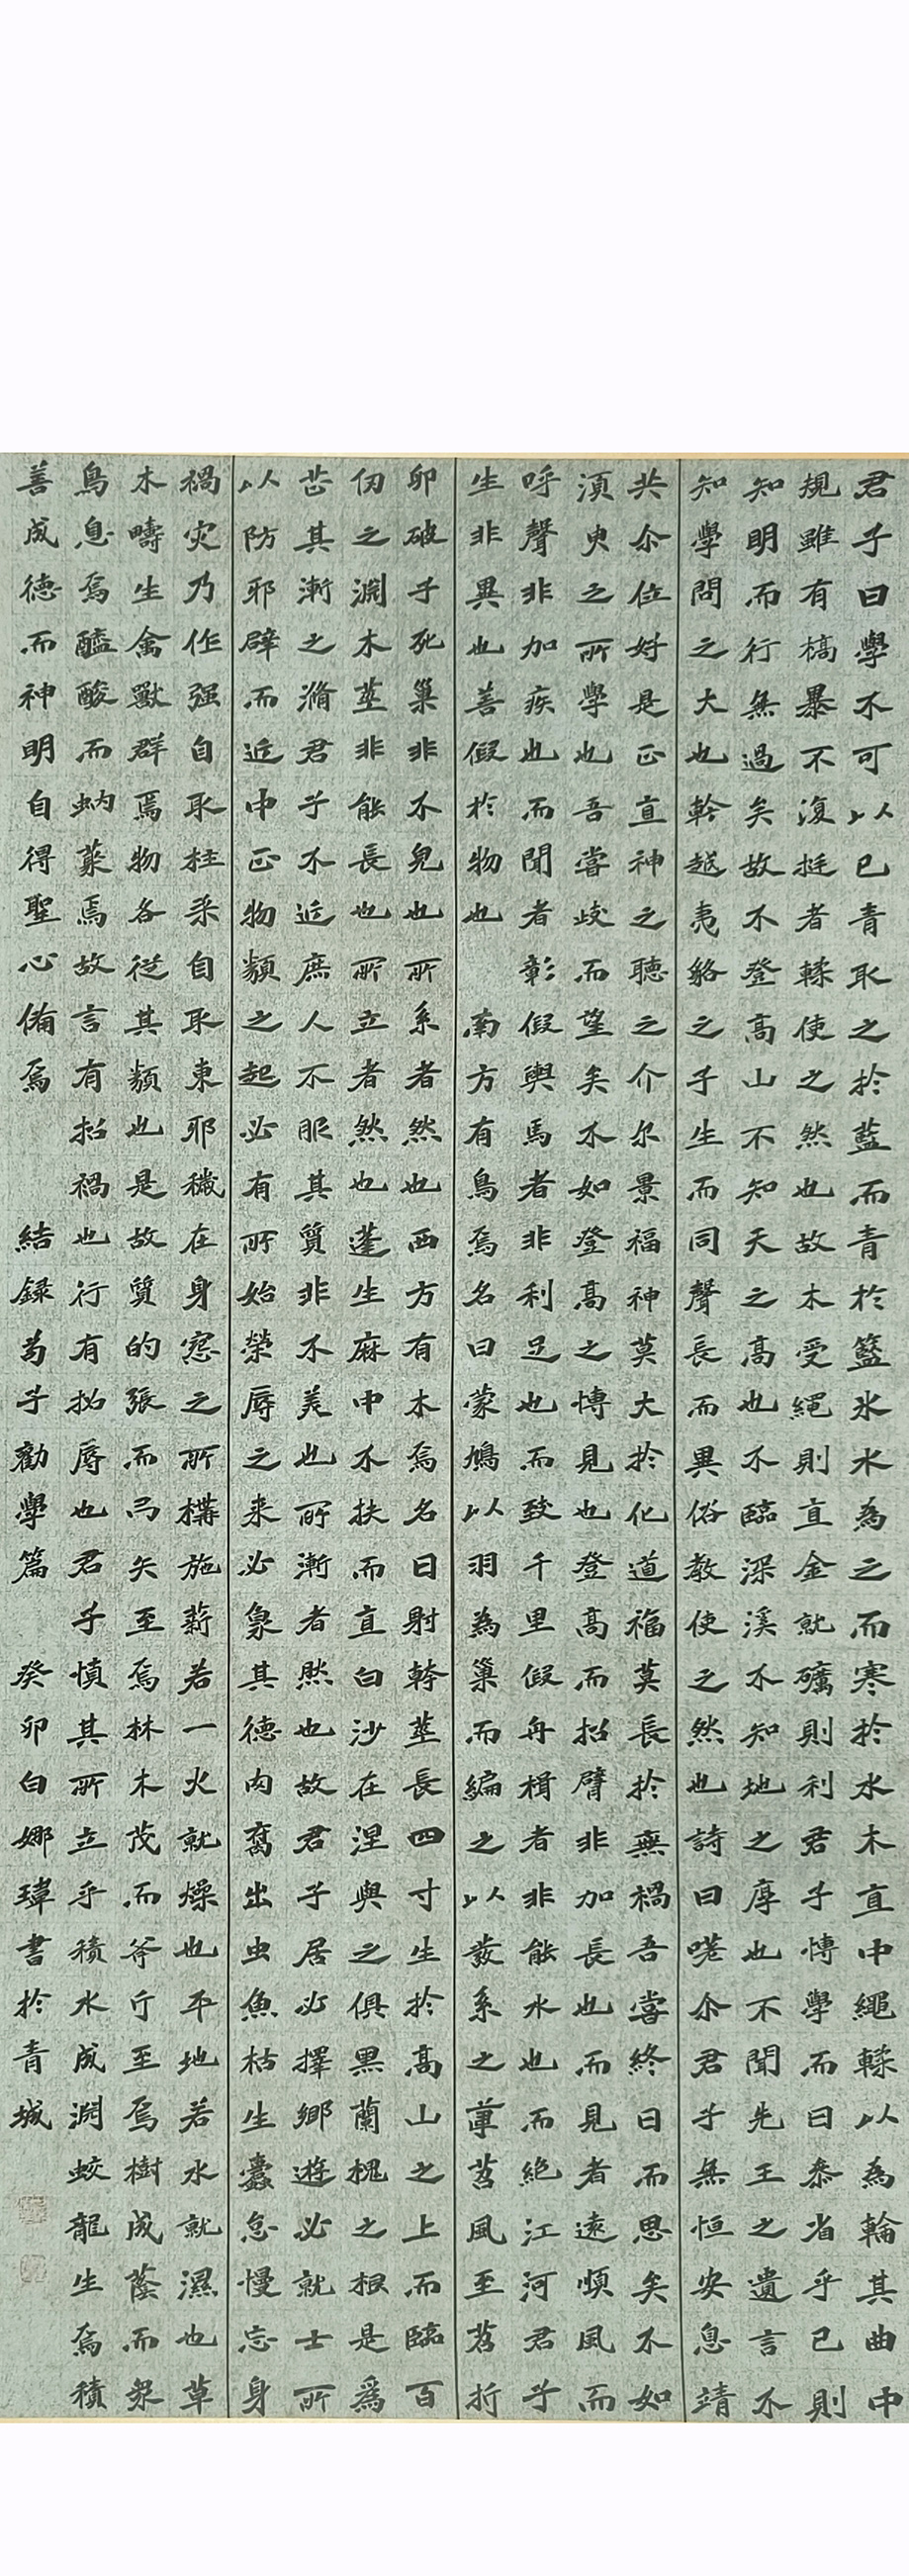 君子曰學不可以已青取之於藍而青於籃氷水為之而寒於水木直中繩輮以為輪其曲中
規雖有槁暴不復挺者輮使之然也故木受繩則直金就礪則利君子博學而日叅省乎己則
知明而行無過矣故不登高山不知天之高也不臨深溪不知地之厚也不聞先王之遺言不
知學問之大也幹越夷貉之子生而同聲長而異俗教使之然也詩曰嗟尒君子無恒安息靖
共尒位好是正直神之聽之介尔景福神莫大於化道福莫長於無禍吾嘗終日而思矣不如
須臾之所學也吾嘗歧而望矣不如登高之博見也登高而招臂非加長也而見者遠順風而
呼聲非加疾也而聞者彰假輿馬者非利足也而致千里假舟楫者非能水也而絶江河君子
生非異也善假於物也 南方有鳥焉名曰蒙鳩以羽為巢而編之以髮系之葦苕風至苕折
卵破子死巢非不完也所系者然也西方有木焉名曰射幹莖長四寸生於高山之上而臨百
仞之淵木莖非能長也所立者然也蓬生麻中不扶而直白沙在涅與之俱黑蘭槐之根是爲
芷其漸之滫君子不近庶人不服其質非不美也所漸者然也故君子居必擇鄉遊必就士所
以防邪辟而近中正物類之起必有所始榮辱之来必象其德肉腐出虫魚枯生蠹怠慢忘身
禍灾乃作强自取柱柔自取束邪穢在身怨之所構施薪若一火就燥也平地若水就濕也草
木疇生禽獸群焉物各從其類也是故質的張而弓矢至焉林木茂而斧斤至焉樹成蔭而衆
鳥息焉醯酸而蚋聚焉故言有招禍也行有招辱也君子慎其所立乎積水成淵蛟龍生焉積
善成德而神明自得聖心備焉 結録荀子勸學篇 癸卯白娜瑋書於青城